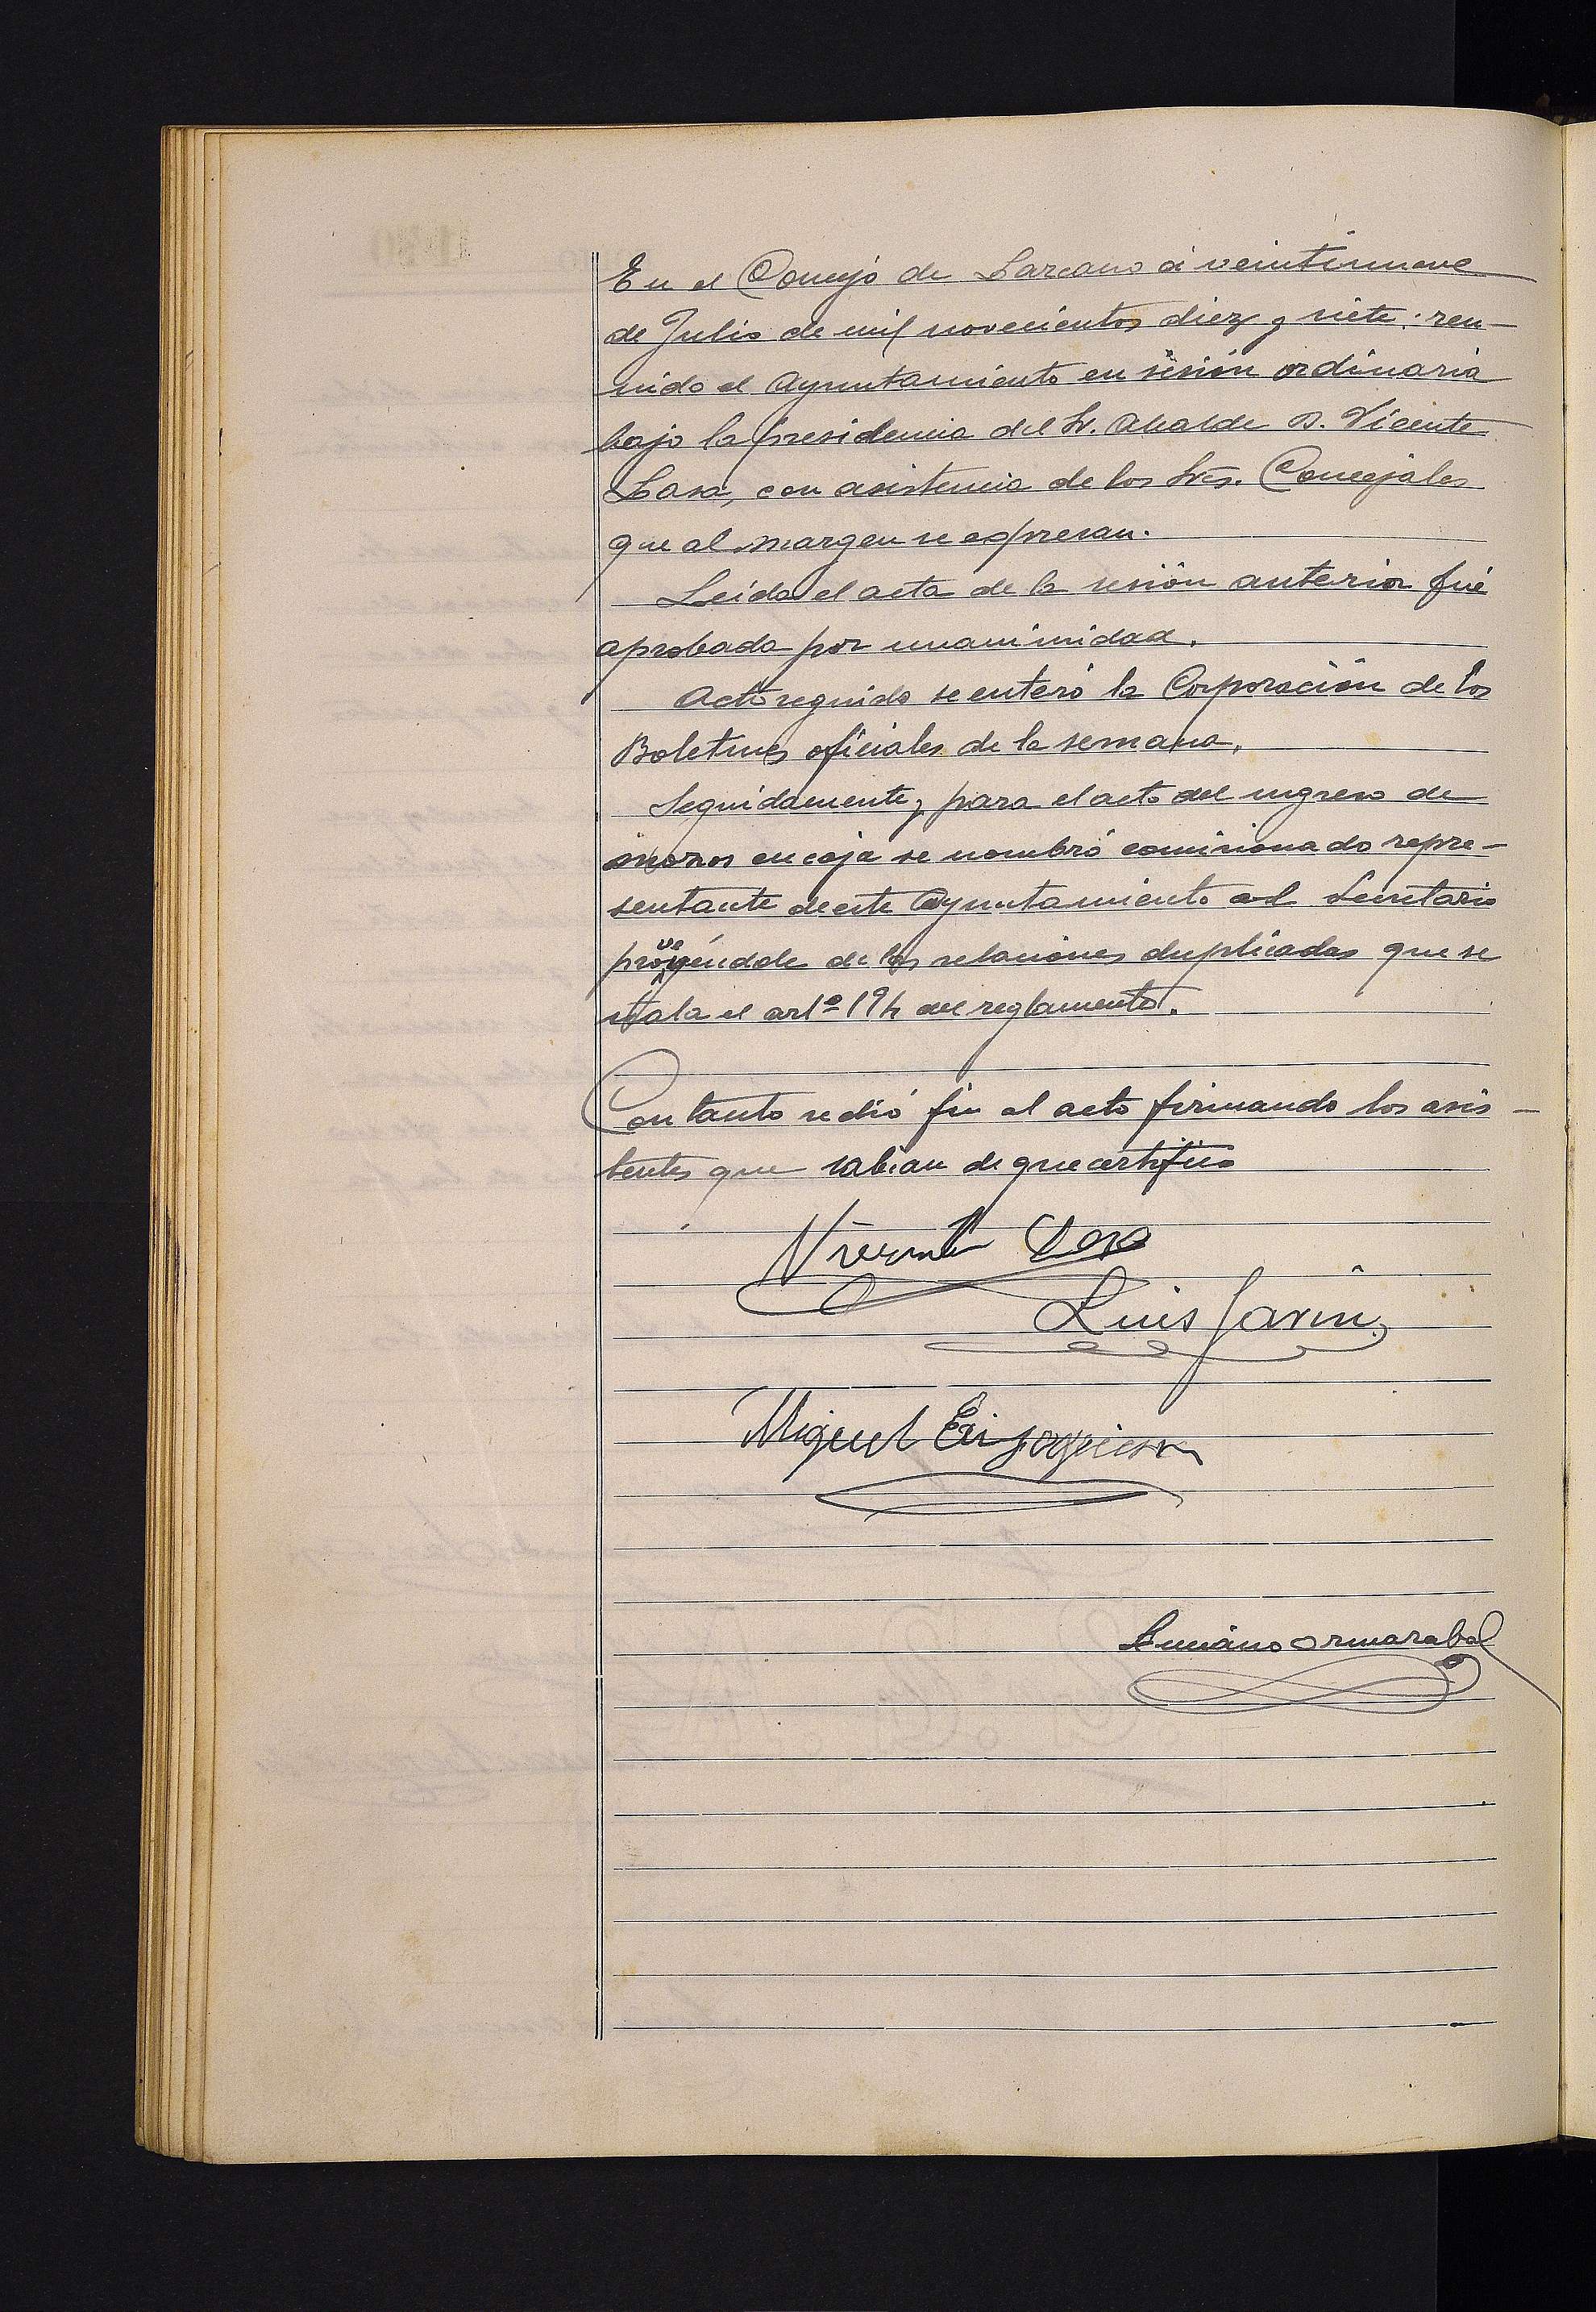 En el Concejo de Lazcano á veintinueve
de Julio de mil novecientos diez y siete: reu-
nido el Ayuntamiento en sesión ordinaria
bajo la presidencia del Sr. Alcalde D. Vicente
Lasa, con asistencia de los Sres. Concejales
que al margen se expresan.
Leida el acta de la sesión anterior fué
aprobada por unanimidad.
Acto seguido se enteró la Corporación de los
Boletines oficiales de la semana.
Seguidamente, para el acto del ingreso de
mozos en caja se nombró comisionado repre-
sentante de este Ayuntamiento al Secretario
proveyéndole de las relaciones duplicadas que se
ñala el artº 194 del reglamento.
Con tanto se dió fin al acto firmando los asis-
tentes que sabian de que certifico
Vicente Lasa
Luis Garin
Miguel
Luciano Ormazabal